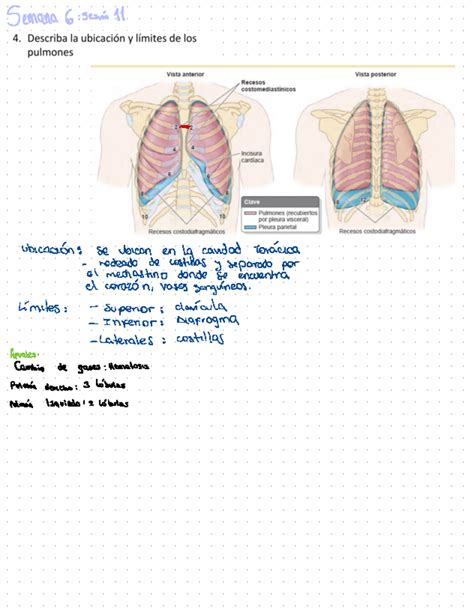 Semana 6: Sesión 11
4. Describa la ubicación y límites de los
pulmones
Vista anterior
Vista posterior
Recesos
costomediastínicos
Incisura
cardíaca
Clave
Pulmones (recubiertos
por pleura visceral)
Pleura parietal
2
2
4
4
6
6
8
8
10
10
12
Recesos costodiafragmáticos
Recesos costodiafragmáticos
Ubicación: Se ubican en la cavidad torácica
- rodeado de costillas y separado por
el mediastino donde se encuentra
el corazón, vasos sanguíneos.
Límites: - Superior: clavícula
- Inferior: Diafragma
- Laterales: costillas
Cambio de gases: Hematosis
Pulmón derecho: 3 lóbulos
Pulmón Izquierdo: 2 lóbulos